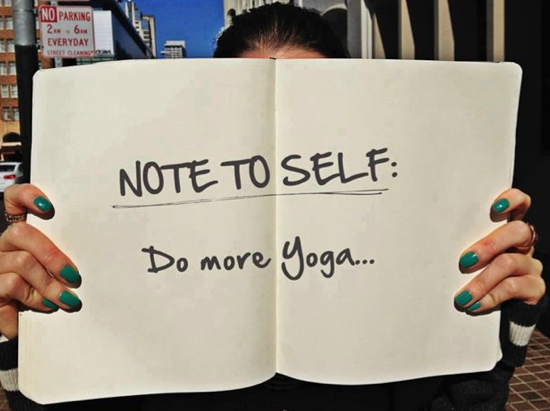 NO PARKING
2AM TO 6AM
EVERYDAY
STREET CLEANING
NOTE TO SELF:
Do more Yoga...